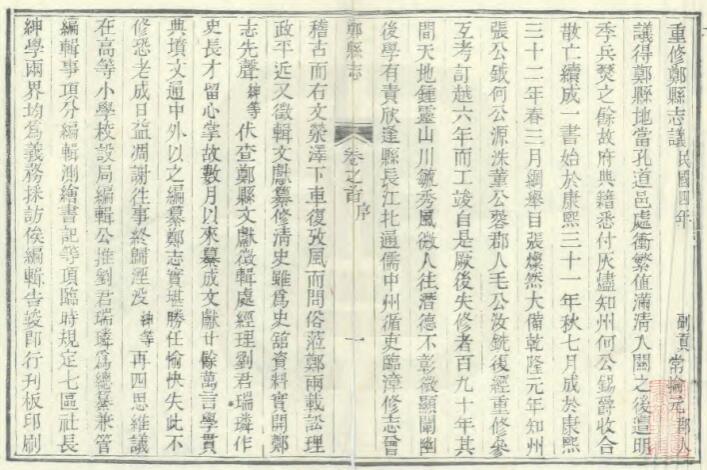 重修鄭縣志議民國四年 副貢常掄元郡人
議得鄭縣地當孔道邑處衝繁值滿清入關之後遭明
季兵燹之餘故府典籍悉付灰燼知州何公錫爵收合
散亡續成一書始於康熙三十一年秋七月成於康熙
三十二年春三月綱舉目張燦然大備乾隆元年知州
張公鉞何公源洙董公蓉郡人毛公汝銑復經重修參
互考訂越六年而工竣自是厥後失修者百九十年其
間天地鍾靈山川毓秀風微人往潛德不彰微顯闡幽
後學有責欣逢縣長江北通儒中州循吏臨漳修志晉
鄭縣志 卷之首 序 一
稽古而右文滎澤下車復攷風而問俗蒞鄭兩載訟理
政平近又徵輯文獻纂修清史雖為史舘資料實開鄭
志先聲紳等伏查鄭縣文獻徵輯處經理劉君瑞璘作
史長才留心掌故數月以來纂成文獻廿餘萬言學貫
典墳文通中外以之編纂鄭志實堪勝任愉快失此不
修恐老成日益凋謝往事終歸湮没紳等再四思維議
在高等小學校設局編輯公推劉君瑞璘為總纂兼管
編輯事項分編輯測繪書記等項臨時規定七區社長
紳學兩界均為義務採訪俟編輯告竣即行刊板印刷